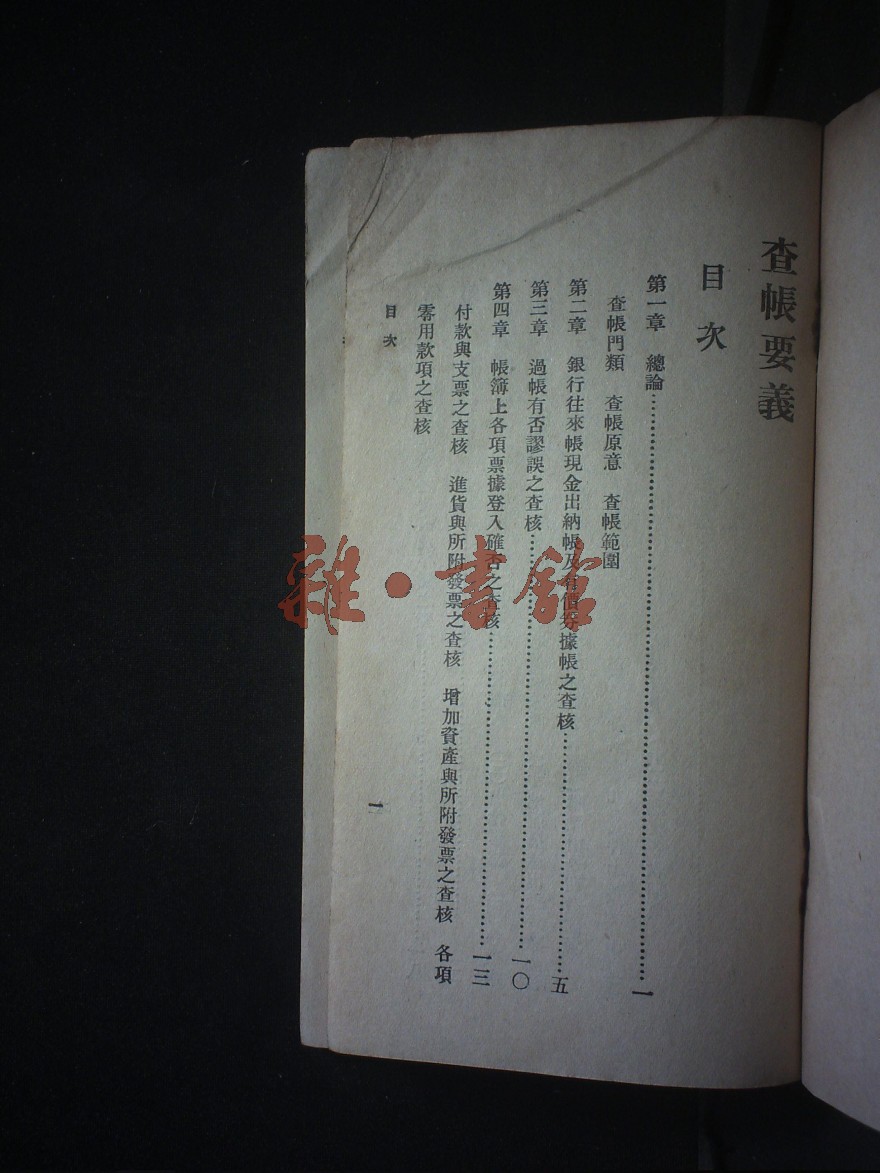 查帳要義
目次
第一章　總論……………………一
查帳門類　查帳原意　查帳範圍
第二章　銀行往來帳現金出納帳及有價券據帳之查核……………………五
第三章　過帳有否謬誤之查核……………………一〇
第四章　帳簿上各項票據登入確否之查核……………………一三
付款與支票之查核　進貨與所附發票之查核　增加資產與所附發票之查核　各項
零用款項之查核
目次
一
雜·書館